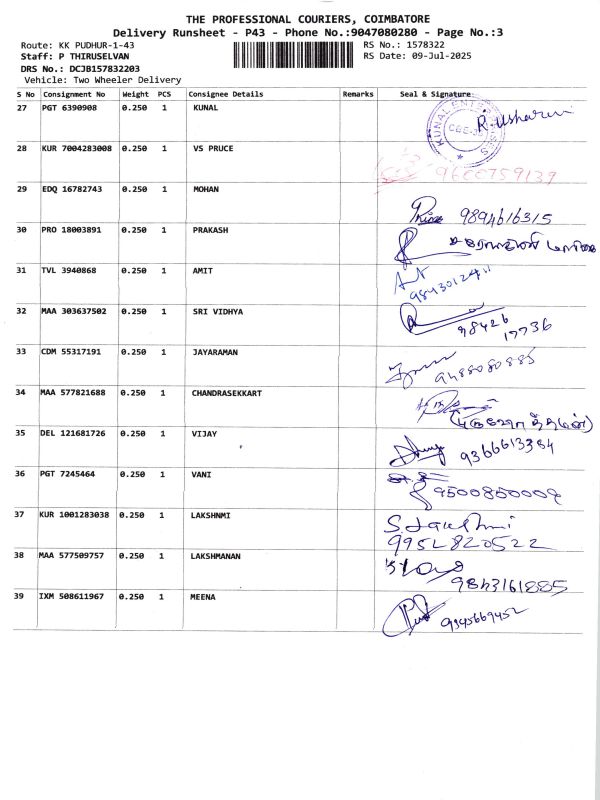 THE PROFESSIONAL COURIERS, COIMBATORE
Delivery Runsheet - P43 - Phone No.:9047080280 - Page No.:3
Route: KK PUDHUR-1-43 RS No.: 1578322
Staff: P THIRUSELVAN RS Date: 09-Jul-2025
DRS No.: DCJB157832203
Vehicle: Two Wheeler Delivery
S No Consignment No Weight PCS Consignee Details Remarks Seal & Signature
27 PGT 6390908 0.250 1 KUNAL
KUNAL ENTERPRISES
R. Usharani
28 KUR 7004283008 0.250 1 VS PRUCE
9600759139
29 EDQ 16782743 0.250 1 MOHAN
9894616315
30 PRO 18003891 0.250 1 PRAKASH
31 TVL 3940868 0.250 1 AMIT
9843012411
32 MAA 303637502 0.250 1 SRI VIDHYA
98426
17736
33 CDM 55317191 0.250 1 JAYARAMAN
9488080885
34 MAA 577821688 0.250 1 CHANDRASEKKART
35 DEL 121681726 0.250 1 VIJAY
9366613384
36 PGT 7245464 0.250 1 VANI
9500850009
37 KUR 1001283038 0.250 1 LAKSHNMI
S. Lakshmi
9952820522
38 MAA 577509757 0.250 1 LAKSHMANAN
9843161885
39 IXM 508611967 0.250 1 MEENA
9345669452